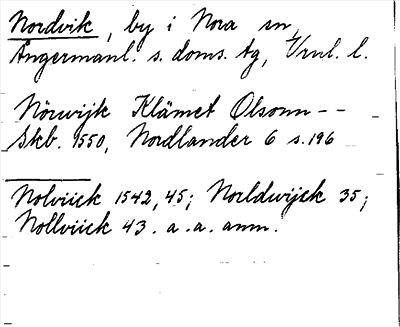 Nordvik, by i Nora sn,
Ångermanl. s. doms. tg, Vrnl. l.
Nörwijk Klämet Olsonn--
Skb. 1550, Nordlander 6 s.196
Nolviick 1542, 45; Norldwijck 35;
Nollviick 43. a.a. anm.